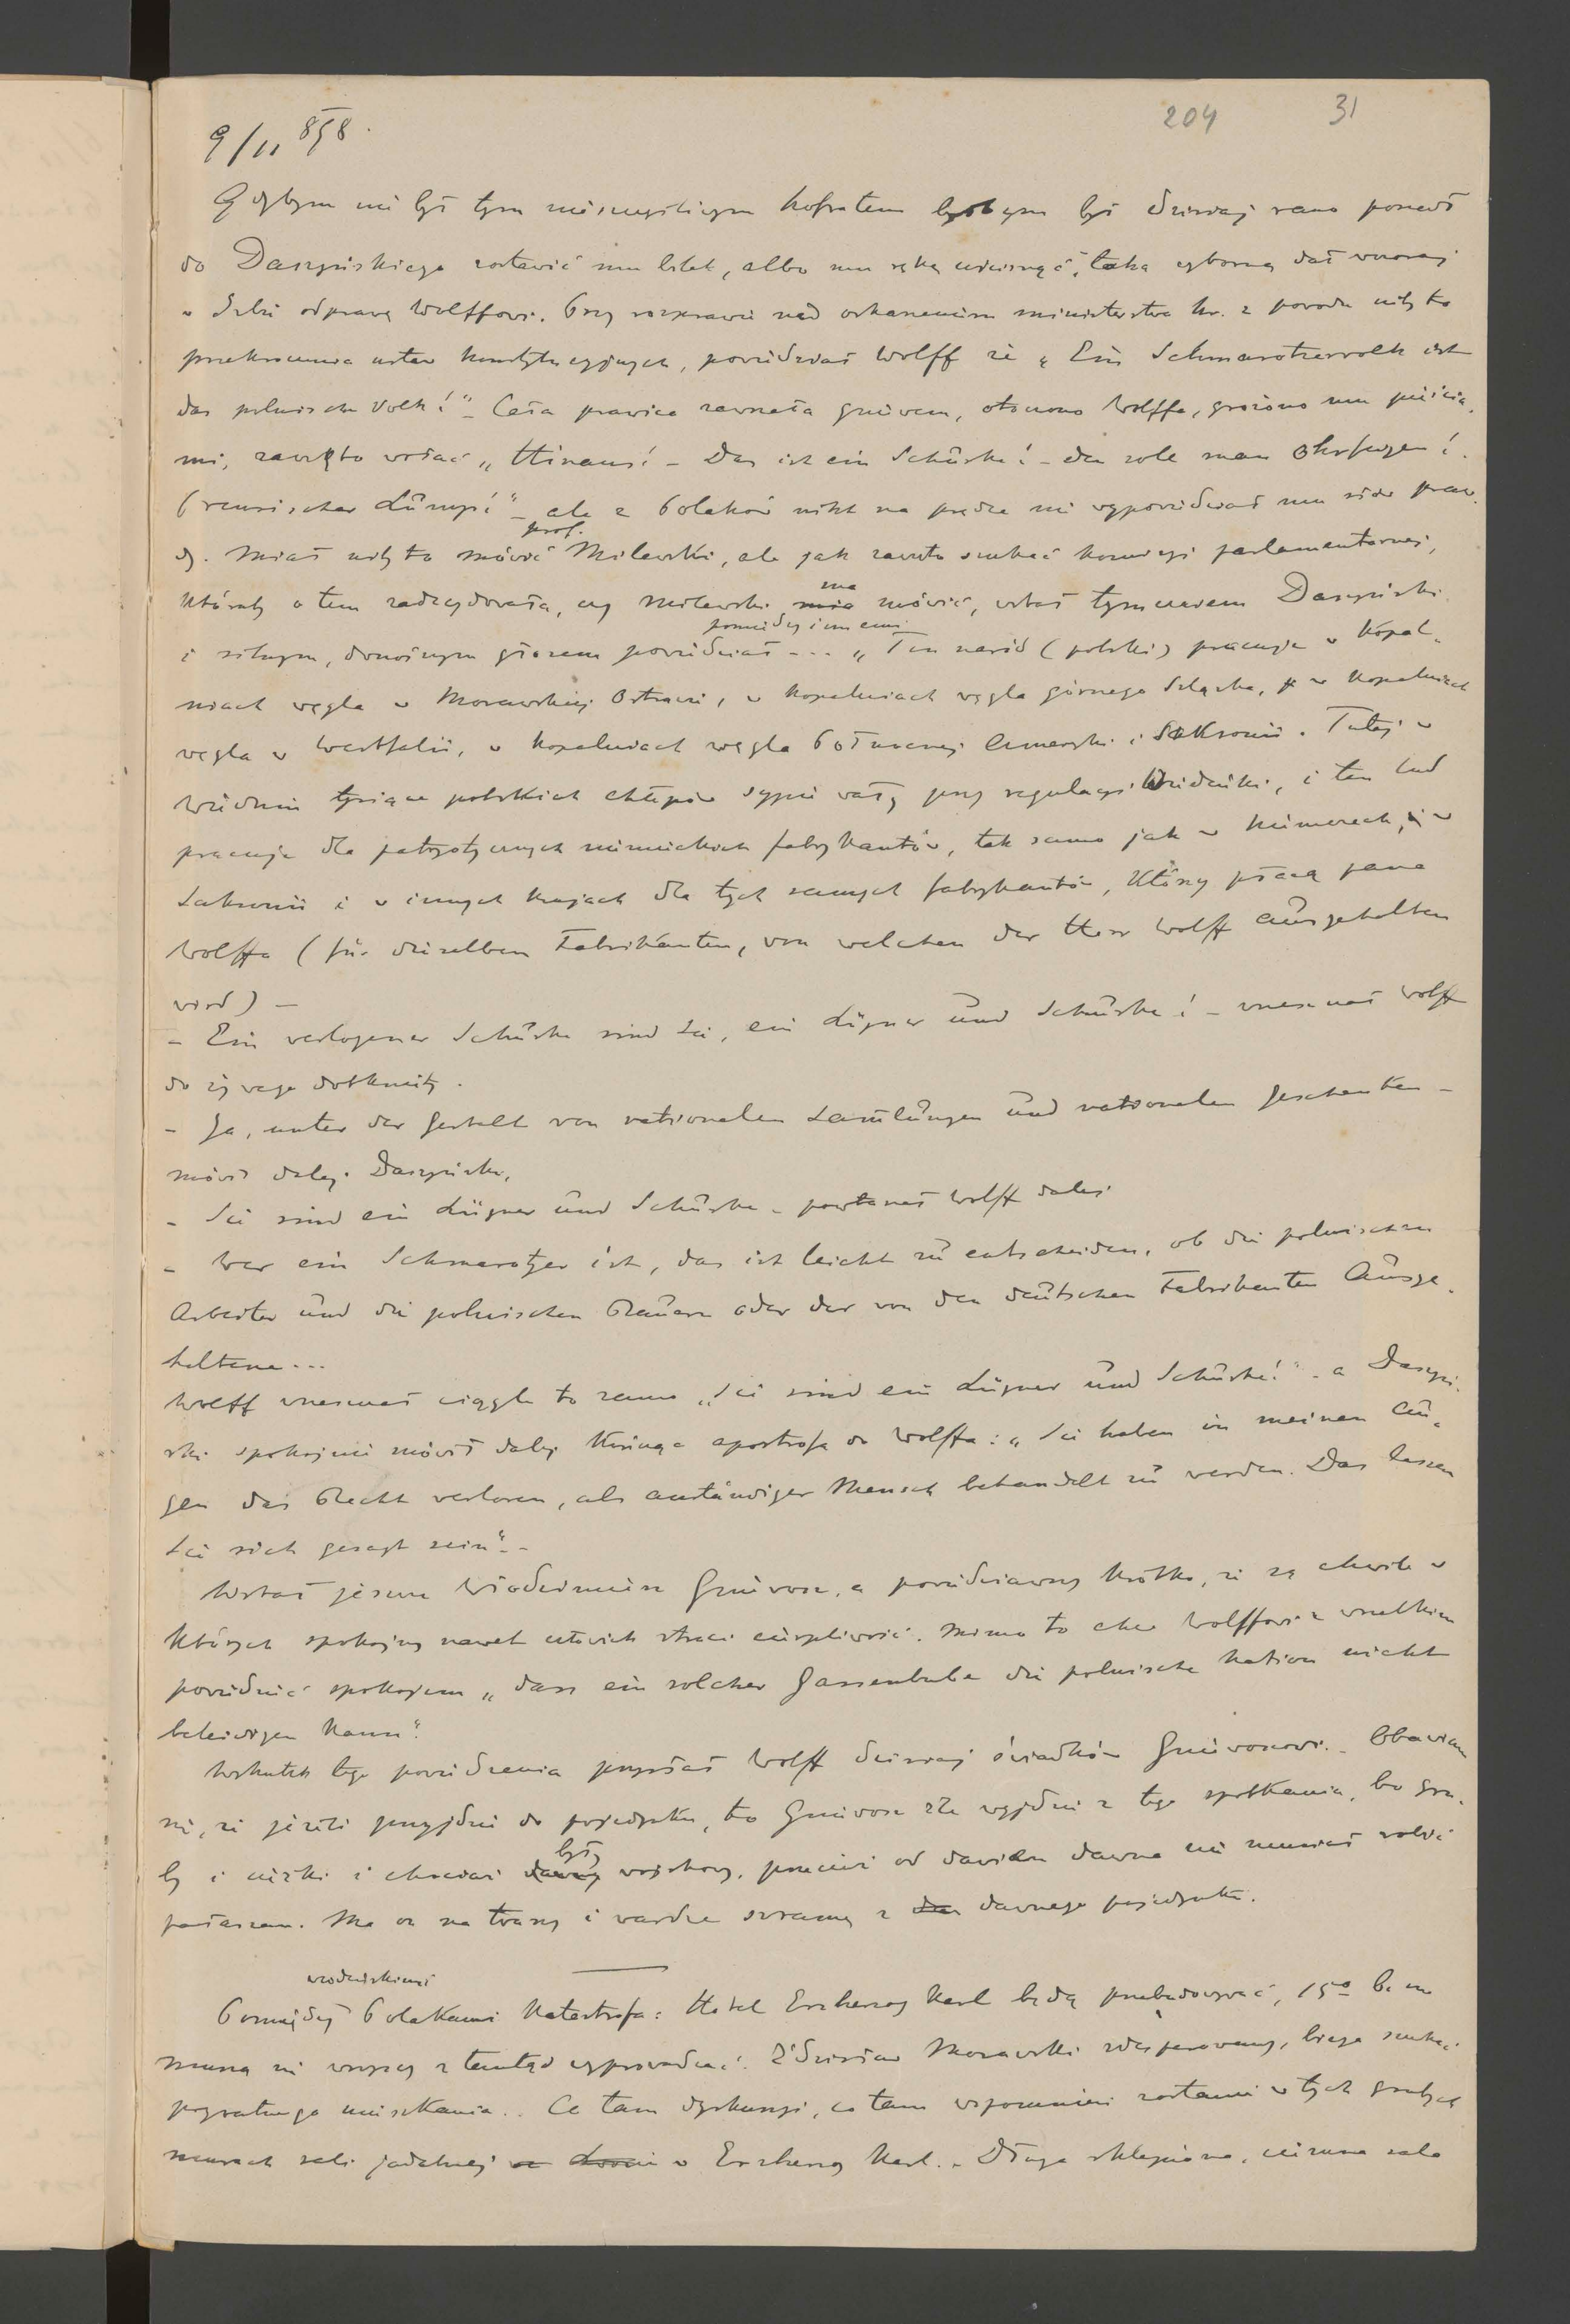 204 31
9/11 898.
Gdybym nie był tym nieszczęśliwym hofratem byłbym był dzisiaj rano poszedł
do Daszyńskiego zostawić mu bilet, albo mu rękę uścisnąć, taką wyborną dał wczoraj
w Izbie odprawę Wolffowi. Przy rozprawie nad oskarżeniem ministerstwa hr. z powodu niby to
przekroczenia ustaw konstytucyjnych, powiedział Wolff że „Ein Schmarotzervolk ist
das polnische Volk!" – Cała prawica zawrzała gniewem, otoczono Wolffa, grożono mu pięścia-
mi, zaczęto wołać „Hinaus! – Das ist ein Schurke! – den sole man Ohrfeigen!
Preussischer Lump!" – ale z Polaków nikt na prędce nie wypowiedział mu słów praw-
dy. Miał niby to mówić prof. Milewski, ale jak zaczęto szukać komisyi parlamentarnej,
któraby o tem zadecydowała, czy Milewski ma mówić, wstał tymczasem Daszyński
i silnym, donośnym głosem powiedział pomiędzy innemi ... „Ten naród (polski) pracuje w kopal-
niach węgla w Morawskiej Ostrawie, w kopalniach węgla górnego Szląska, w kopalniach
węgla w Westfalii, w kopalniach węgla Północnej Ameryki i Saksonii. Tutaj w
Wiedniu tysiące polskich chłopów sypie wały przy regulacyi Wiedeńki, i ten lud
pracuje dla patryotycznych niemieckich fabrykantów, tak samo jak w Niemczech, w
Saksonii i w innych krajach dla tych samych fabrykantów, którzy płacą pana
Wolffa (für dieselben Fabrikanten, von welchen der Herr Wolff ausgehalten
wird) –
– Ein verlogener Schurke sind Sie, ein Lügner und Schurke! – wrzeszczał Wolff
do żywego dotknięty.
– Ja, unter der Gestalt von nationalen Samlungen und nationalen Geschenken –
mówi dalej Daszyński,
– Sie sind ein Lügner und Schurke – powtarzał Wolff dalej
– Wer ein Schmarotzer ist, das ist leicht zu entscheiden, ob die polnischen
Arbeiter und die polnischen Bauern oder der von den deutschen Fabrikanten Ausge-
haltene...
Wolff wrzeszczał ciągle to samo „Sie sind ein Lügner und Schurke!" – a Daszyń-
ski spokojnie mówił dalej kończąc apostrofą do Wolffa: „Sie haben in meinen Au-
gen das Recht verloren, als anständiger Mensch behandelt zu werden. Das lassen
Sie sich gesagt sein". –
Wstał jeszcze Włodzimierz Gniewosz, a powiedziawszy krótko, że są chwile w
których spokojny nawet człowiek straci cierpliwość. Mimo to chce Wolffowi z wszelkim
powiedzieć spokojem „dass ein solcher Gassenbube die polnische Nation nicht
beleidigen kann".
Wskutek tego powiedzenia przysłał Wolff dzisiaj świadków Gniewoszowi. – Obawiam
się, że jeżeli przyjdzie do pojedynku, to Gniewosz źle wyjdzie z tego spotkania, bo gru-
by i ciężki i chociaż były wojskowy, przecież od dawna nie musiał robić
pałaszem. Ma on na twarzy i wardze szramę z dawnego pojedynku.
Pomiędzy wiedeńskiemi Polakami katastrofa: Hotel Erzherzog Karl będą przebudowywać, 15o b. m
muszą się wszyscy z tamtąd wyprowadzać. Zdzisław Morawski zdesperowany, biega szukać
prywatnego mieszkania.. Co tam dyskusyi, co tam wspomnień zostanie w tych grubych
murach sali jadalnej w Erzherzog Karl. – Długa sklepiona, ciemna sala